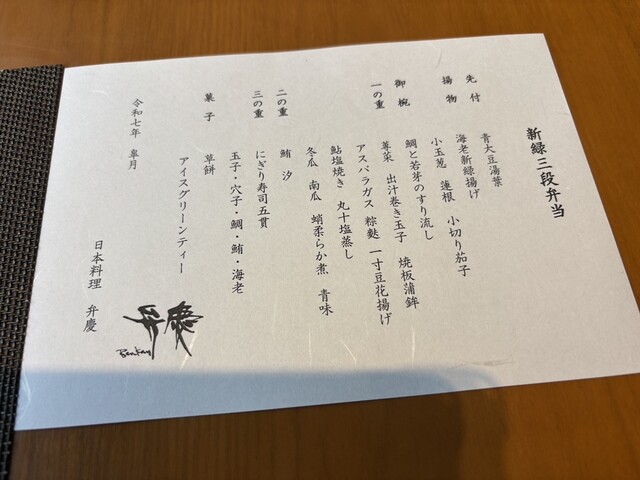 新緑三段弁当
先付 青大豆湯葉
揚物 海老新緑揚げ
小玉葱 蓮根 小切り茄子
御椀 鯛と若芽のすり流し
一の重 蓴菜 出汁巻き玉子 焼板蒲鉾
アスパラガス 粽麩 一寸豆花揚げ
鮎塩焼き 丸十塩蒸し
冬瓜 南瓜 蛸柔らか煮 青味
二の重 鮪 汐
三の重 にぎり寿司五貫
玉子・穴子・鯛・鮪・海老
菓子 草餅
アイスグリーンティー
令和七年 皐月
日本料理 弁慶
弁慶
Benkay